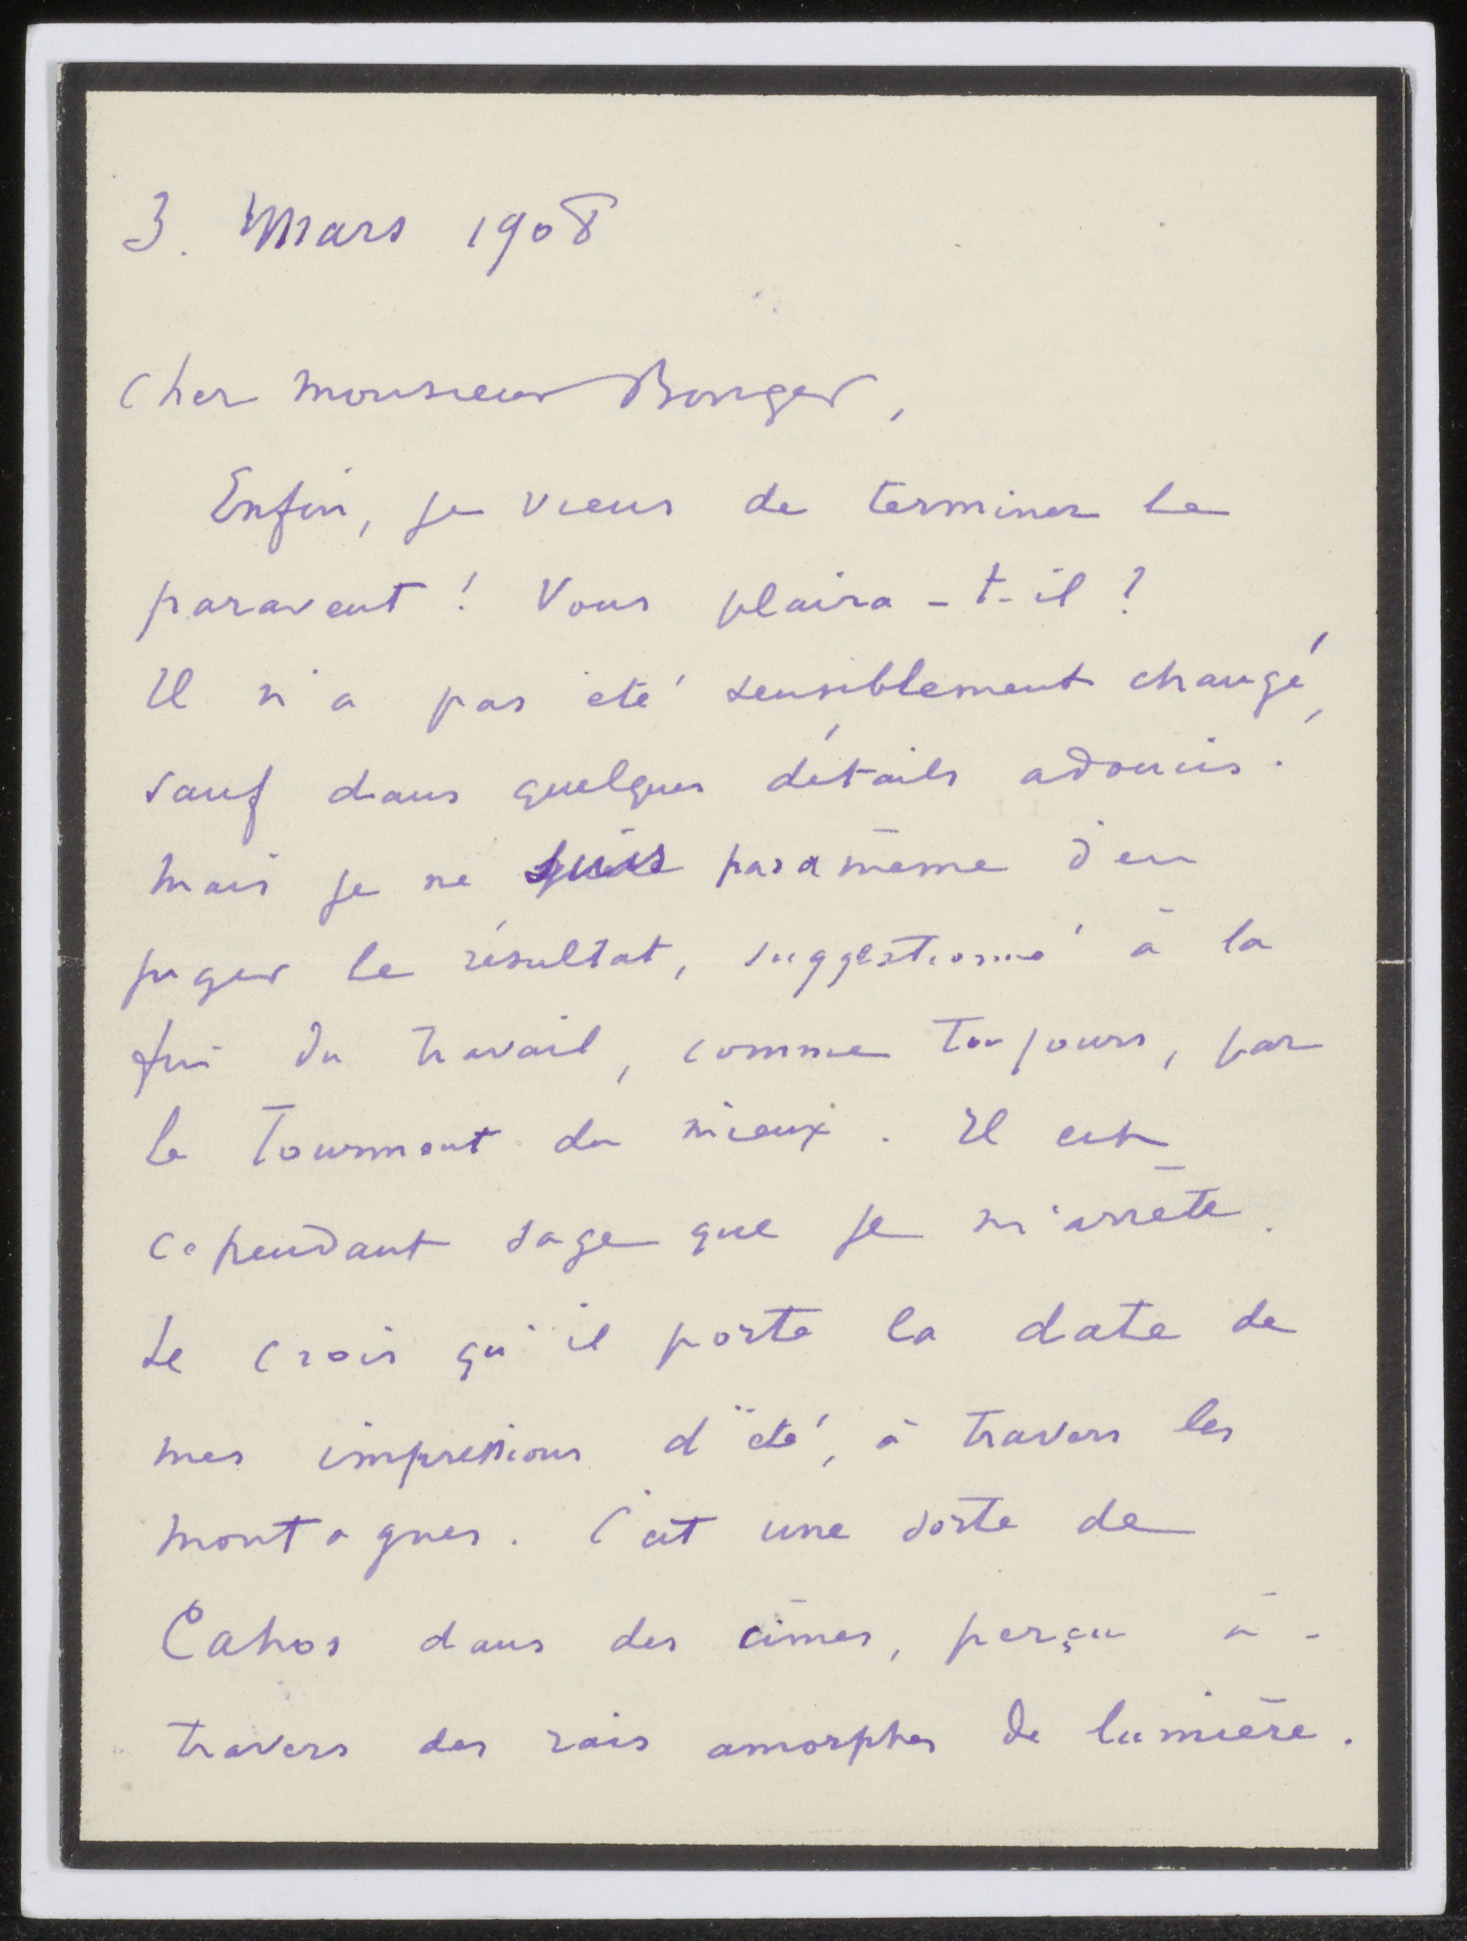 3. Mars 1908
Cher Monsieur Bonger,
Enfin, je viens de terminer le
paravent ! Vous plaira-t-il ?
Il n'a pas été sensiblement changé,
sauf dans quelques détails adoucis.
Mais je ne suis pas à même d'en
juger le résultat, suggestionné à la
fin du travail, comme toujours, par
le tourment du mieux. Il est
cependant sage que je m'arrête.
Je crois qu'il porte la date de
mes impressions d'été, à travers les
montagnes. C'est une sorte de
Cahos dans des cîmes, perçu à-
travers des rais amorphes de lumière.